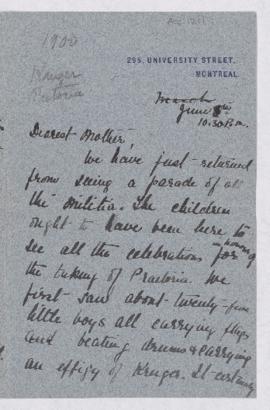 1900
Kruger
Pretoria
Acc 1211
295, UNIVERSITY STREET,
MONTREAL.
March
June 5th
10.30 P.m.
Dearest Mother,
We have just returned
from seeing a parade of all
the militia. The children
ought to have been here to
see all the celebrations for
the taking of Praetoria. We
first saw about twenty-five
little boys all carrying flags
and beating drums & carrying
an effigy of Kruger. It certainly